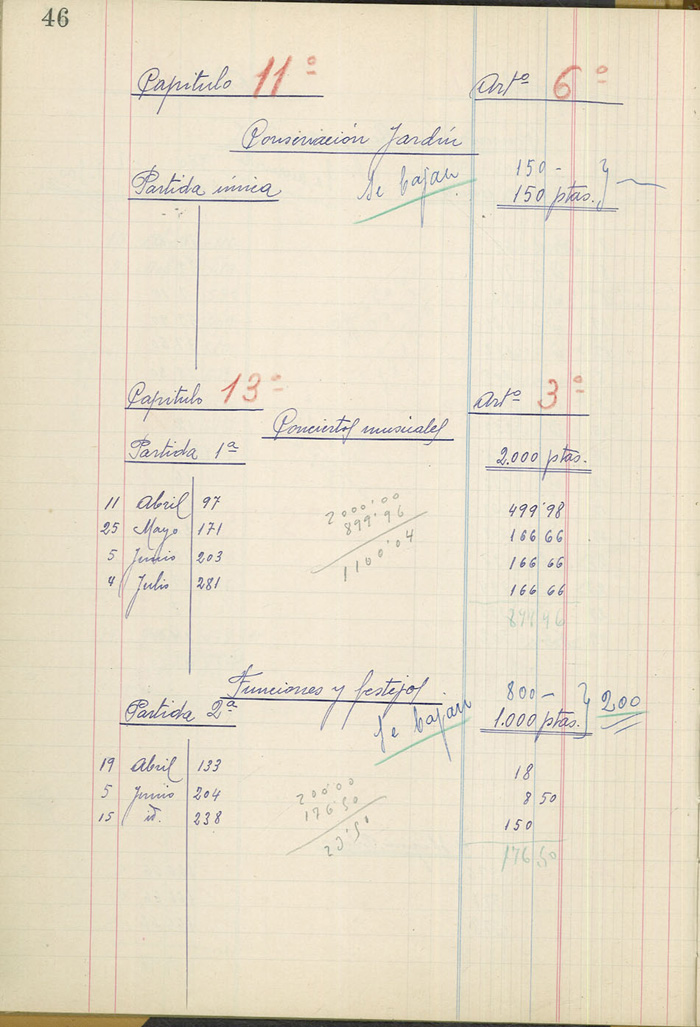 46
Capitulo 11º Artº 6º
Conservación Jardín
Partida única Se bajan 150 -
150 ptas.
Capitulo 13º Artº 3º
Conciertos musicales
Partida 1ª 2.000 ptas.
11 Abril 97 2000'00 499'98
25 Mayo 171 899'96 166 66
5 Junio 203 1100'04 166 66
4 Julio 281 166 66
899 96
Funciones y festejos 800 - 200
Partida 2ª Se bajan 1.000 ptas.
19 Abril 133 200'00 18
5 Junio 204 176'50 8 50
15 id. 238 23'50 150
176 50